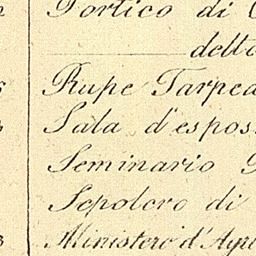 Portico di
detto
Rupe Tarpea
Sala d'espos
Seminario
Sepolcro di
Ministero d'Agri